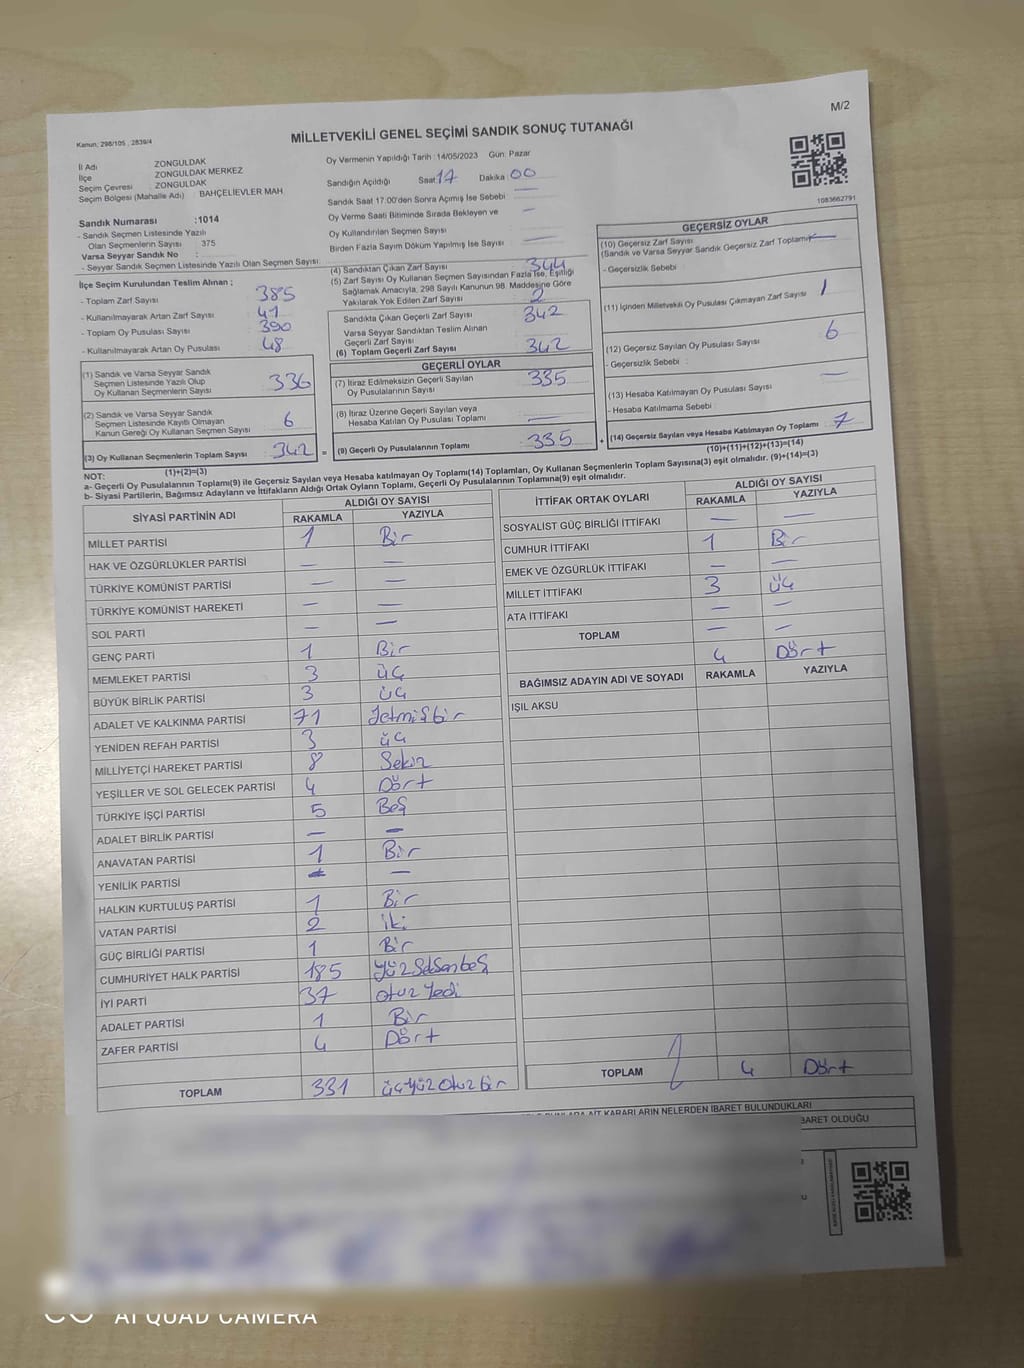 M/2
Kanun: 298/105 , 2839/4
MİLLETVEKİLİ GENEL SEÇİMİ SANDIK SONUÇ TUTANAĞI
İl Adı ZONGULDAK
İlçe ZONGULDAK MERKEZ
Seçim Çevresi : ZONGULDAK
Seçim Bölgesi (Mahalle Adı) : BAHÇELİEVLER MAH
Sandık Numarası :1014
- Sandık Seçmen Listesinde Yazılı
Olan Seçmenlerin Sayısı : 375
Varsa Seyyar Sandık No :
- Seyyar Sandık Seçmen Listesinde Yazılı Olan Seçmen Sayısı:
Oy Vermenin Yapıldığı Tarih : 14/05/2023 Gün: Pazar
Sandığın Açıldığı Saat 17 Dakika 00
Sandık Saat 17.00'den Sonra Açımış İse Sebebi —
Oy Verme Saati Bitiminde Sırada Bekleyen ve —
Oy Kullandırılan Seçmen Sayısı
Birden Fazla Sayım Döküm Yapılmış İse Sayısı —
1083662791
İlçe Seçim Kurulundan Teslim Alınan ;
- Toplam Zarf Sayısı : 385
- Kullanılmayarak Artan Zarf Sayısı : 41
- Toplam Oy Pusulası Sayısı : 390
- Kullanılmayarak Artan Oy Pusulası : 48
(1) Sandık ve Varsa Seyyar Sandık
Seçmen Listesinde Yazılı Olup
Oy Kullanan Seçmenlerin Sayısı 336
(2) Sandık ve Varsa Seyyar Sandık
Seçmen Listesinde Kayıtlı Olmayan
Kanun Gereği Oy Kullanan Seçmen Sayısı 6
(3) Oy Kullanan Seçmenlerin Toplam Sayısı 342
(1)+(2)=(3)
(4) Sandıktan Çıkan Zarf Sayısı 344
(5) Zarf Sayısı Oy Kullanan Seçmen Sayısından Fazla İse, Eşitliği
Sağlamak Amacıyla, 298 Sayılı Kanunun 98. Maddesine Göre
Yakılarak Yok Edilen Zarf Sayısı 2
Sandıkta Çıkan Geçerli Zarf Sayısı 342
Varsa Seyyar Sandıktan Teslim Alınan
Geçerli Zarf Sayısı
(6) Toplam Geçerli Zarf Sayısı 342
GEÇERLİ OYLAR
(7) İtiraz Edilmeksizin Geçerli Sayılan
Oy Pusulalarının Sayısı 335
(8) İtiraz Üzerine Geçerli Sayılan veya
Hesaba Katılan Oy Pusulası Toplamı —
= (9) Geçerli Oy Pusulalarının Toplamı 335
GEÇERSİZ OYLAR
(10) Geçersiz Zarf Sayısı
(Sandık ve Varsa Seyyar Sandık Geçersiz Zarf Toplamı) —
- Geçersizlik Sebebi :
(11) İçinden Milletvekili Oy Pusulası Çıkmayan Zarf Sayısı 1
(12) Geçersiz Sayılan Oy Pusulası Sayısı 6
- Geçersizlik Sebebi :
(13) Hesaba Katılmayan Oy Pusulası Sayısı —
- Hesaba Katılmama Sebebi :
+ (14) Geçersiz Sayılan veya Hesaba Katılmayan Oy Toplamı 7
(10)+(11)+(12)+(13)=(14)
NOT:
a- Geçerli Oy Pusulalarının Toplamı(9) ile Geçersiz Sayılan veya Hesaba katılmayan Oy Toplamı(14) Toplamları, Oy Kullanan Seçmenlerin Toplam Sayısına(3) eşit olmalıdır. (9)+(14)=(3)
b- Siyasi Partilerin, Bağımsız Adayların ve İttifakların Aldığı Ortak Oyların Toplamı, Geçerli Oy Pusulalarının Toplamına(9) eşit olmalıdır.
SİYASİ PARTİNİN ADI ALDIĞI OY SAYISI
RAKAMLA YAZIYLA
MİLLET PARTİSİ 1 Bir
HAK VE ÖZGÜRLÜKLER PARTİSİ — —
TÜRKİYE KOMÜNİST PARTİSİ — —
TÜRKİYE KOMÜNİST HAREKETİ — —
SOL PARTİ — —
GENÇ PARTİ 1 Bir
MEMLEKET PARTİSİ 3 üç
BÜYÜK BİRLİK PARTİSİ 3 üç
ADALET VE KALKINMA PARTİSİ 71 Yetmişbir
YENİDEN REFAH PARTİSİ 3 üç
MİLLİYETÇİ HAREKET PARTİSİ 8 Sekiz
YEŞİLLER VE SOL GELECEK PARTİSİ 4 Dört
TÜRKİYE İŞÇİ PARTİSİ 5 Beş
ADALET BİRLİK PARTİSİ — —
ANAVATAN PARTİSİ 1 Bir
YENİLİK PARTİSİ — —
HALKIN KURTULUŞ PARTİSİ 1 Bir
VATAN PARTİSİ 2 iki
GÜÇ BİRLİĞİ PARTİSİ 1 Bir
CUMHURİYET HALK PARTİSİ 185 YüzSeksenbeş
İYİ PARTİ 37 otuz Yedi
ADALET PARTİSİ 1 Bir
ZAFER PARTİSİ 4 Dört
TOPLAM 331 üçYüzotuzbir
İTTİFAK ORTAK OYLARI ALDIĞI OY SAYISI
RAKAMLA YAZIYLA
SOSYALİST GÜÇ BİRLİĞİ İTTİFAKI — —
CUMHUR İTTİFAKI 1 Bir
EMEK VE ÖZGÜRLÜK İTTİFAKI — —
MİLLET İTTİFAKI 3 üç
ATA İTTİFAKI — —
TOPLAM — —
4 Dört
BAĞIMSIZ ADAYIN ADI VE SOYADI RAKAMLA YAZIYLA
IŞIL AKSU
TOPLAM 4 Dört
AİT KARARLARIN NELERDEN İBARET BULUNDUKLARI
İBARET OLDUĞU
AI QUAD CAMERA